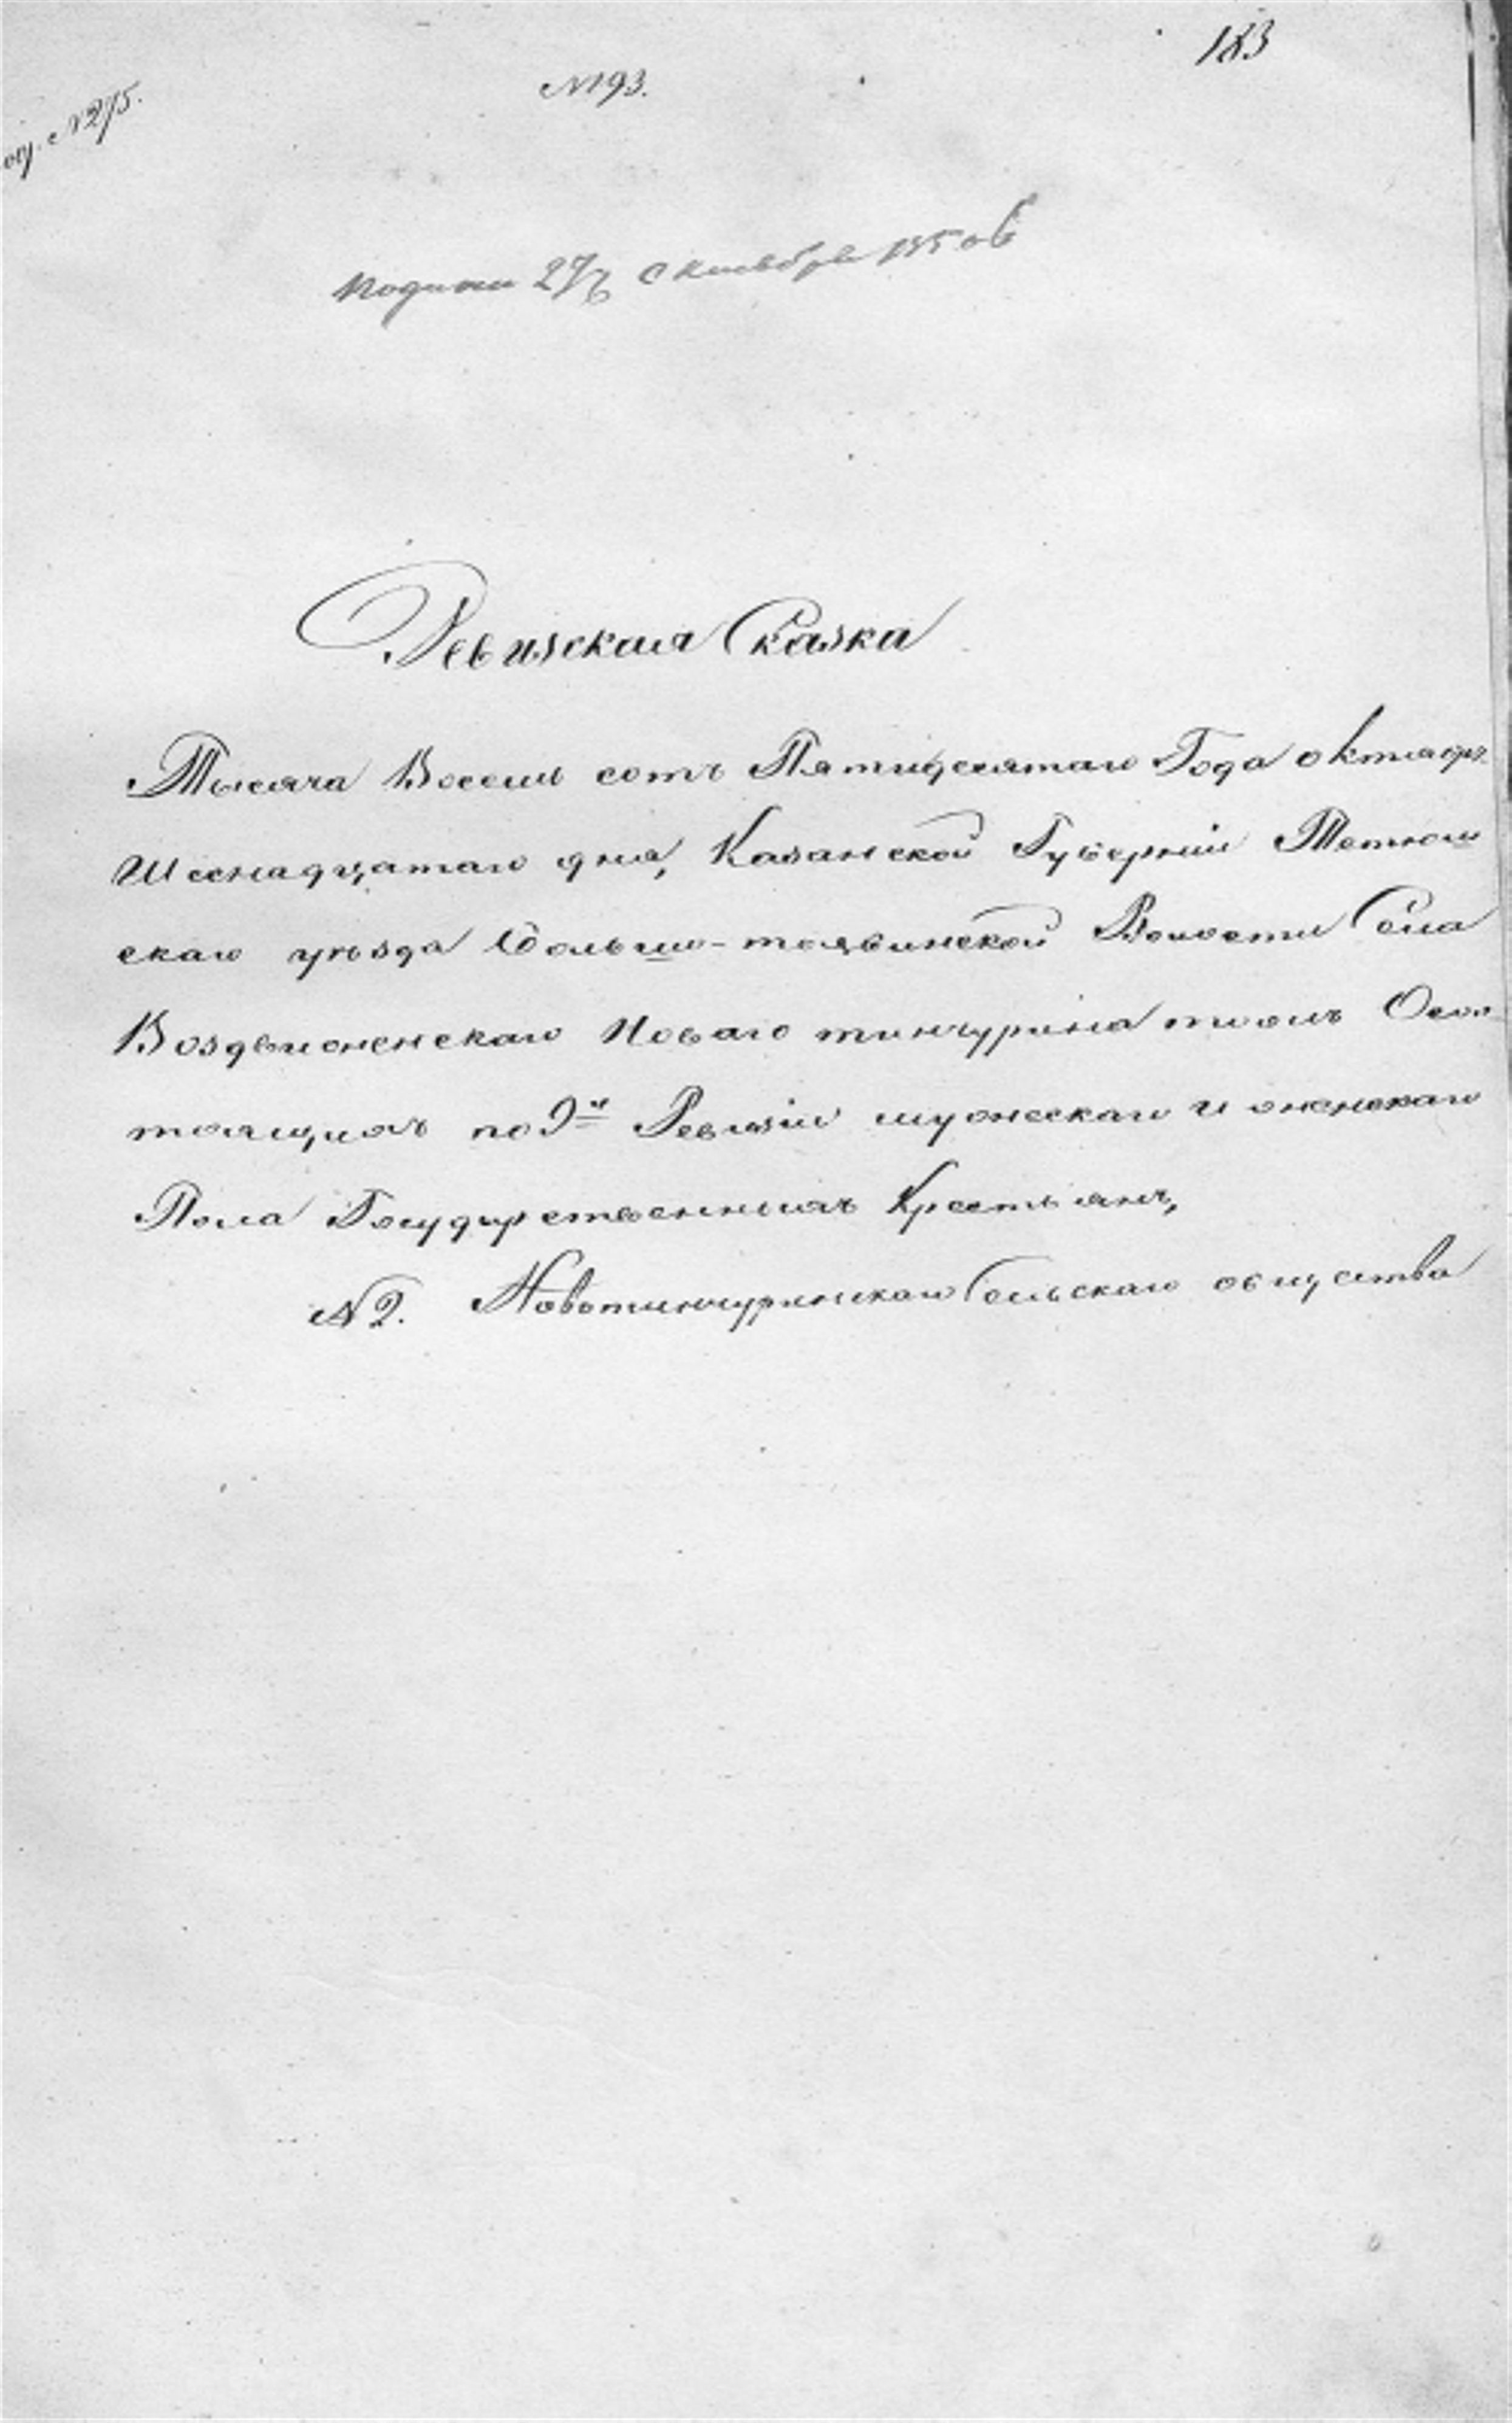 183
№ 93.
№ 275.
27 Октября 1850
Ревизская Сказка
Тысяча Восемь сотъ Пятидесятаго Года октября
Шеснадцатаго дня, Казанской Губерніи Тетюш
скаго уѣзда Больше-таябинской Волости Села
Воздвиженскаго Новаго тинчурина тожъ О сос
тоящихъ по 9й Ревизіи мужескаго и женскаго
Пола Государственныхъ Крестьянъ,
№ 2. Новотинчуринскаго Сельскаго общества